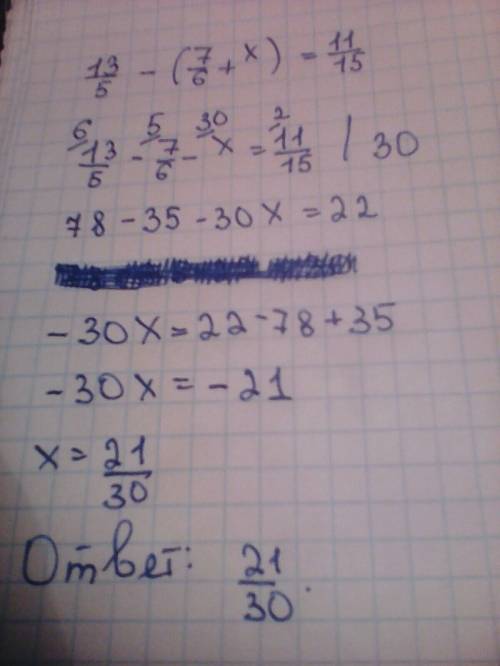 13/5 - (7/6 + x) = 11/15
6/ 13/5 - 5/ 7/6 - 30/ x = 2/ 11/15 | 30
78 - 35 - 30x = 22
- 30x = 22 - 78 + 35
- 30x = - 21
x = 21/30
Ответ: 21/30.